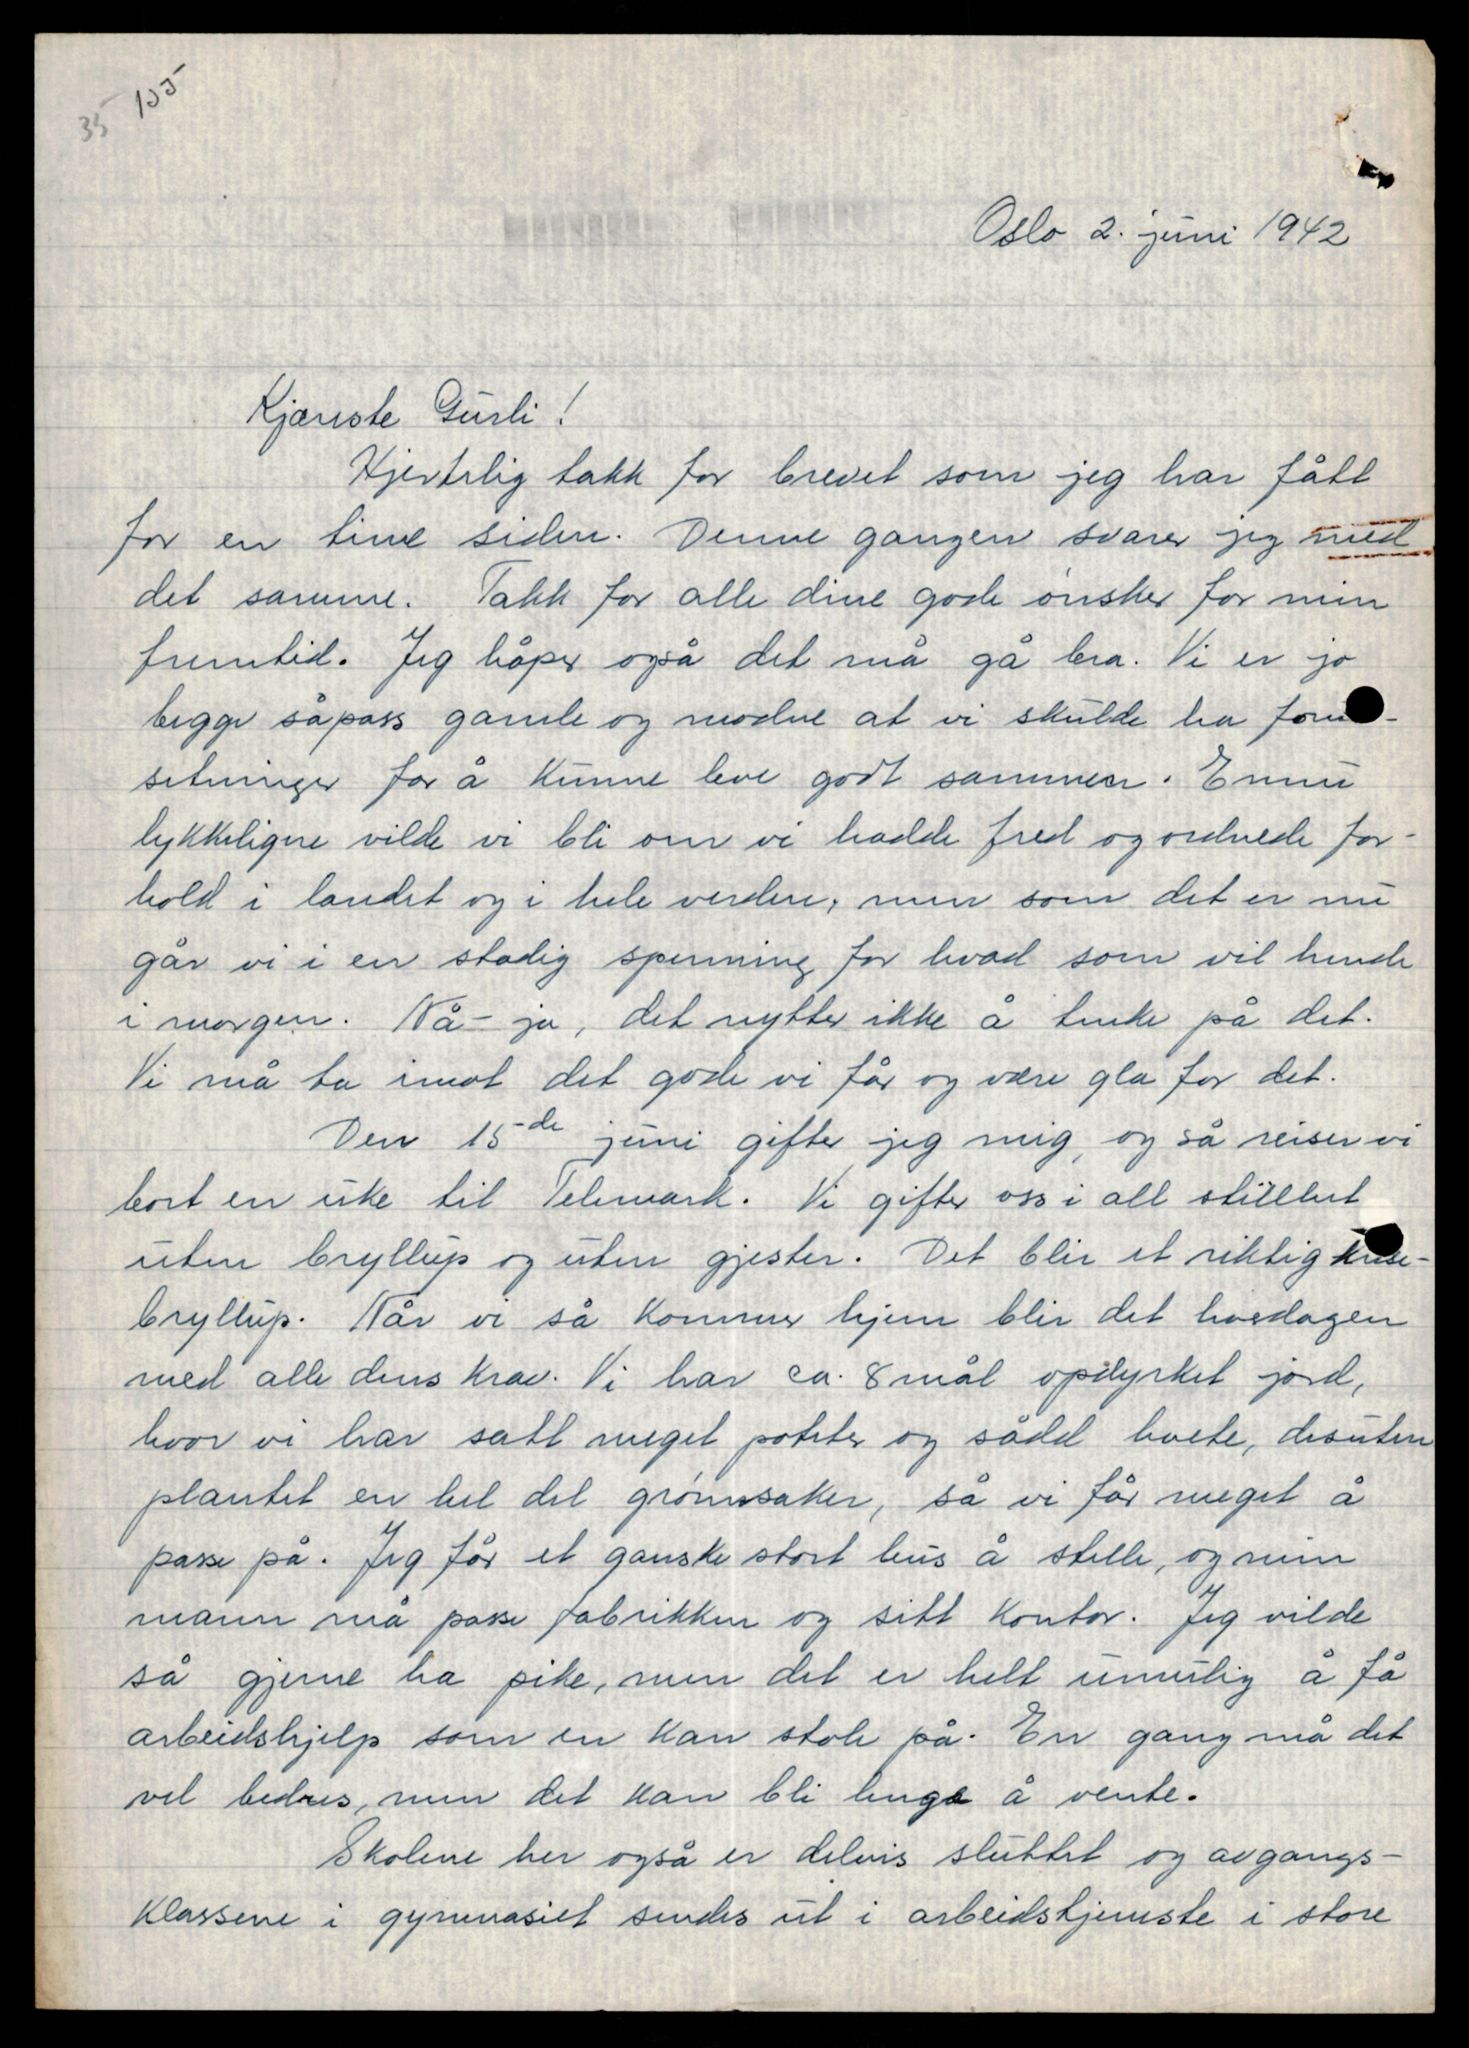 35 155
Oslo 2. juni 1942
Kjæreste Gurli!
Hjertelig takk for brevet som jeg har fått
for en time siden. Denne gangen svarer jeg med
det samme. Takk for alle dine gode ønsker for min
fremtid. Jeg håper også det må gå bra. Vi er jo
begge såpass gamle og modne at vi skulde ha forut-
setninger for å kunne leve godt sammen. Ennu
lykkeligere vilde vi bli om vi hadde fred og ordnede for-
hold i landet og i hele verden, men som det er nu
går vi i en stadig spenning for hvad som vil hende
i morgen. Nå-ja, det nytter ikke å tenke på det.
Vi må ta imot det gode vi får og være gla for det.
Den 15-de juni gifter jeg mig, og så reiser vi
bort en uke til Telemark. Vi gifter oss i all stillhet
uten bryllup og uten gjester. Det blir et riktig krise-
bryllup. Når vi så kommer hjem blir det hverdagen
med alle dens krav. Vi har ca. 8 mål opdyrket jord,
hvor vi har satt meget poteter og sådd hvete, desuten
plantet en hel del grønnsaker, så vi får meget å
passe på. Jeg får et ganske stort hus å stelle, og min
mann må passe fabrikken og sitt kontor. Jeg vilde
så gjerne ha pike, men det er helt umulig å få
arbeidshjelp som en kan stole på. En gang må det
vel bedres, men det kan bli lenge å vente.
Skolene her også er delvis sluttet og avgangs-
klassene i gymnasiet sendes ut i arbeidstjeneste i store